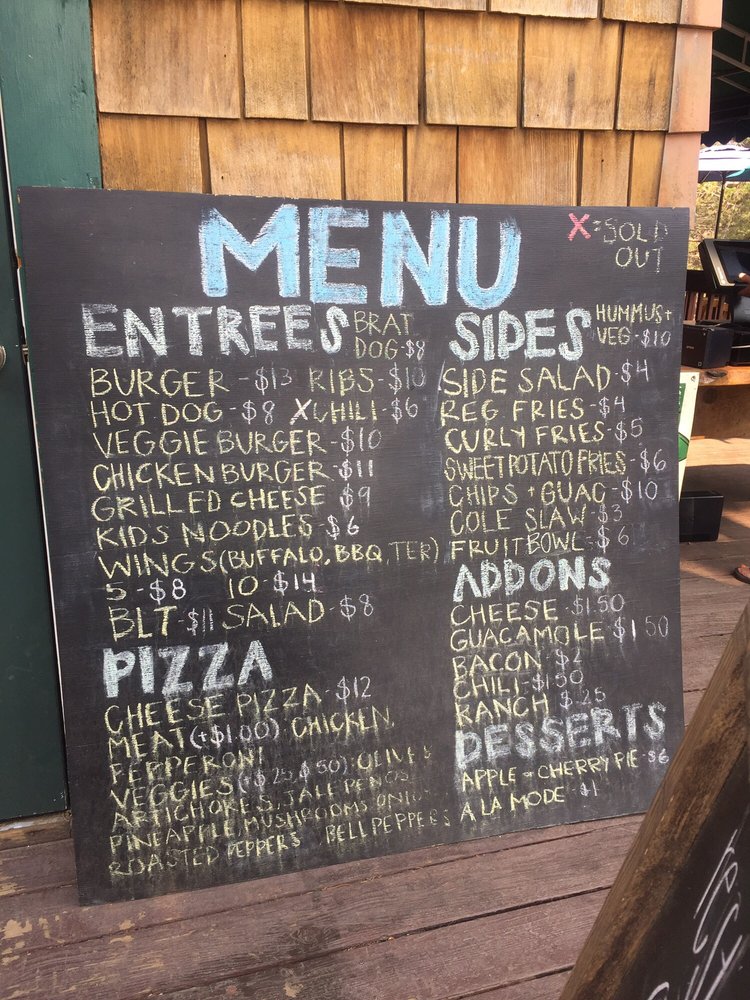 MENU
X=SOLD
OUT
ENTREES
BRAT
DOG-$8
BURGER-$13 RIBS-$10
HOT DOG-$8 XCHILI-$6
VEGGIE BURGER-$10
CHICKEN BURGER-$11
GRILLED CHEESE $9
KIDS NOODLES-$6
WINGS(BUFFALO, BBQ, TER)
5-$8 10-$14
BLT-$11 SALAD-$8
PIZZA
CHEESE PIZZA-$12
MEAT(+$1.00): CHICKEN,
PEPPERONI
VEGGIES(+$.25,$.50):OLIVES
ARTICHOKES, JALEPENOS
PINEAPPLE, MUSHROOMS ONION
ROASTED PEPPERS BELL PEPPERS
SIDES
HUMMUS+
VEG-$10
SIDE SALAD-$4
REG FRIES-$4
CURLY FRIES-$5
SWEET POTATO FRIES-$6
CHIPS + GUAC-$10
COLE SLAW-$3
FRUIT BOWL-$6
ADDONS
CHEESE-$1.50
GUACAMOLE $1.50
BACON-$2
CHILI-$1.50
RANCH $.25
DESSERTS
APPLE-CHERRY PIE-$6
A LA MODE-$1